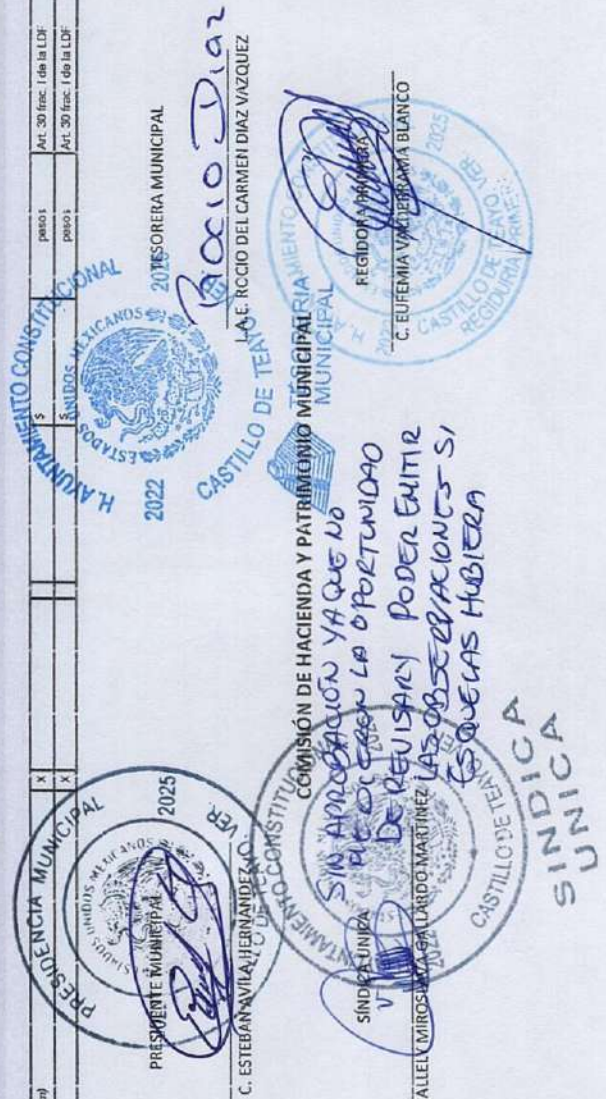 n)
x
$
pesos
Art. 30 frac. I de la LDF
x
$
pesos
Art. 30 frac. I de la LDF
PRESIDENCIA MUNICIPAL
ESTADOS UNIDOS MEXICANOS
2025
VER.
PRESIDENTE MUNICIPAL
C. ESTEBAN AVILA HERNANDEZ
H. AYUNTAMIENTO CONSTITUCIONAL
ESTADOS UNIDOS MEXICANOS
2022
CASTILLO DE TEAYO
TESORERIA
MUNICIPAL
TESORERA MUNICIPAL
Rocio Diaz
L.A.E. ROCIO DEL CARMEN DIAZ VAZQUEZ
COMISIÓN DE HACIENDA Y PATRIMONIO MUNICIPAL
SINDICA UNICA
ALLELY MIROSLAVA GALLARDO MARTINEZ
SIN APROBACIÓN YA QUE NO
LA OPORTUNIDAD
DE REVISAR Y PODER EMITIR
LAS OBSERVACIONES SI
ES QUE LAS HUBIERA
AYUNTAMIENTO CONSTITUCIONAL
2022
CASTILLO DE TEAYO VER
SINDICA
UNICA
REGIDORA PRIMERA
C. EUFEMIA VALDERRAMA BLANCO
H. AYUNTAMIENTO
2025
CASTILLO DE TEAYO VER.
REGIDURIA PRIMERA